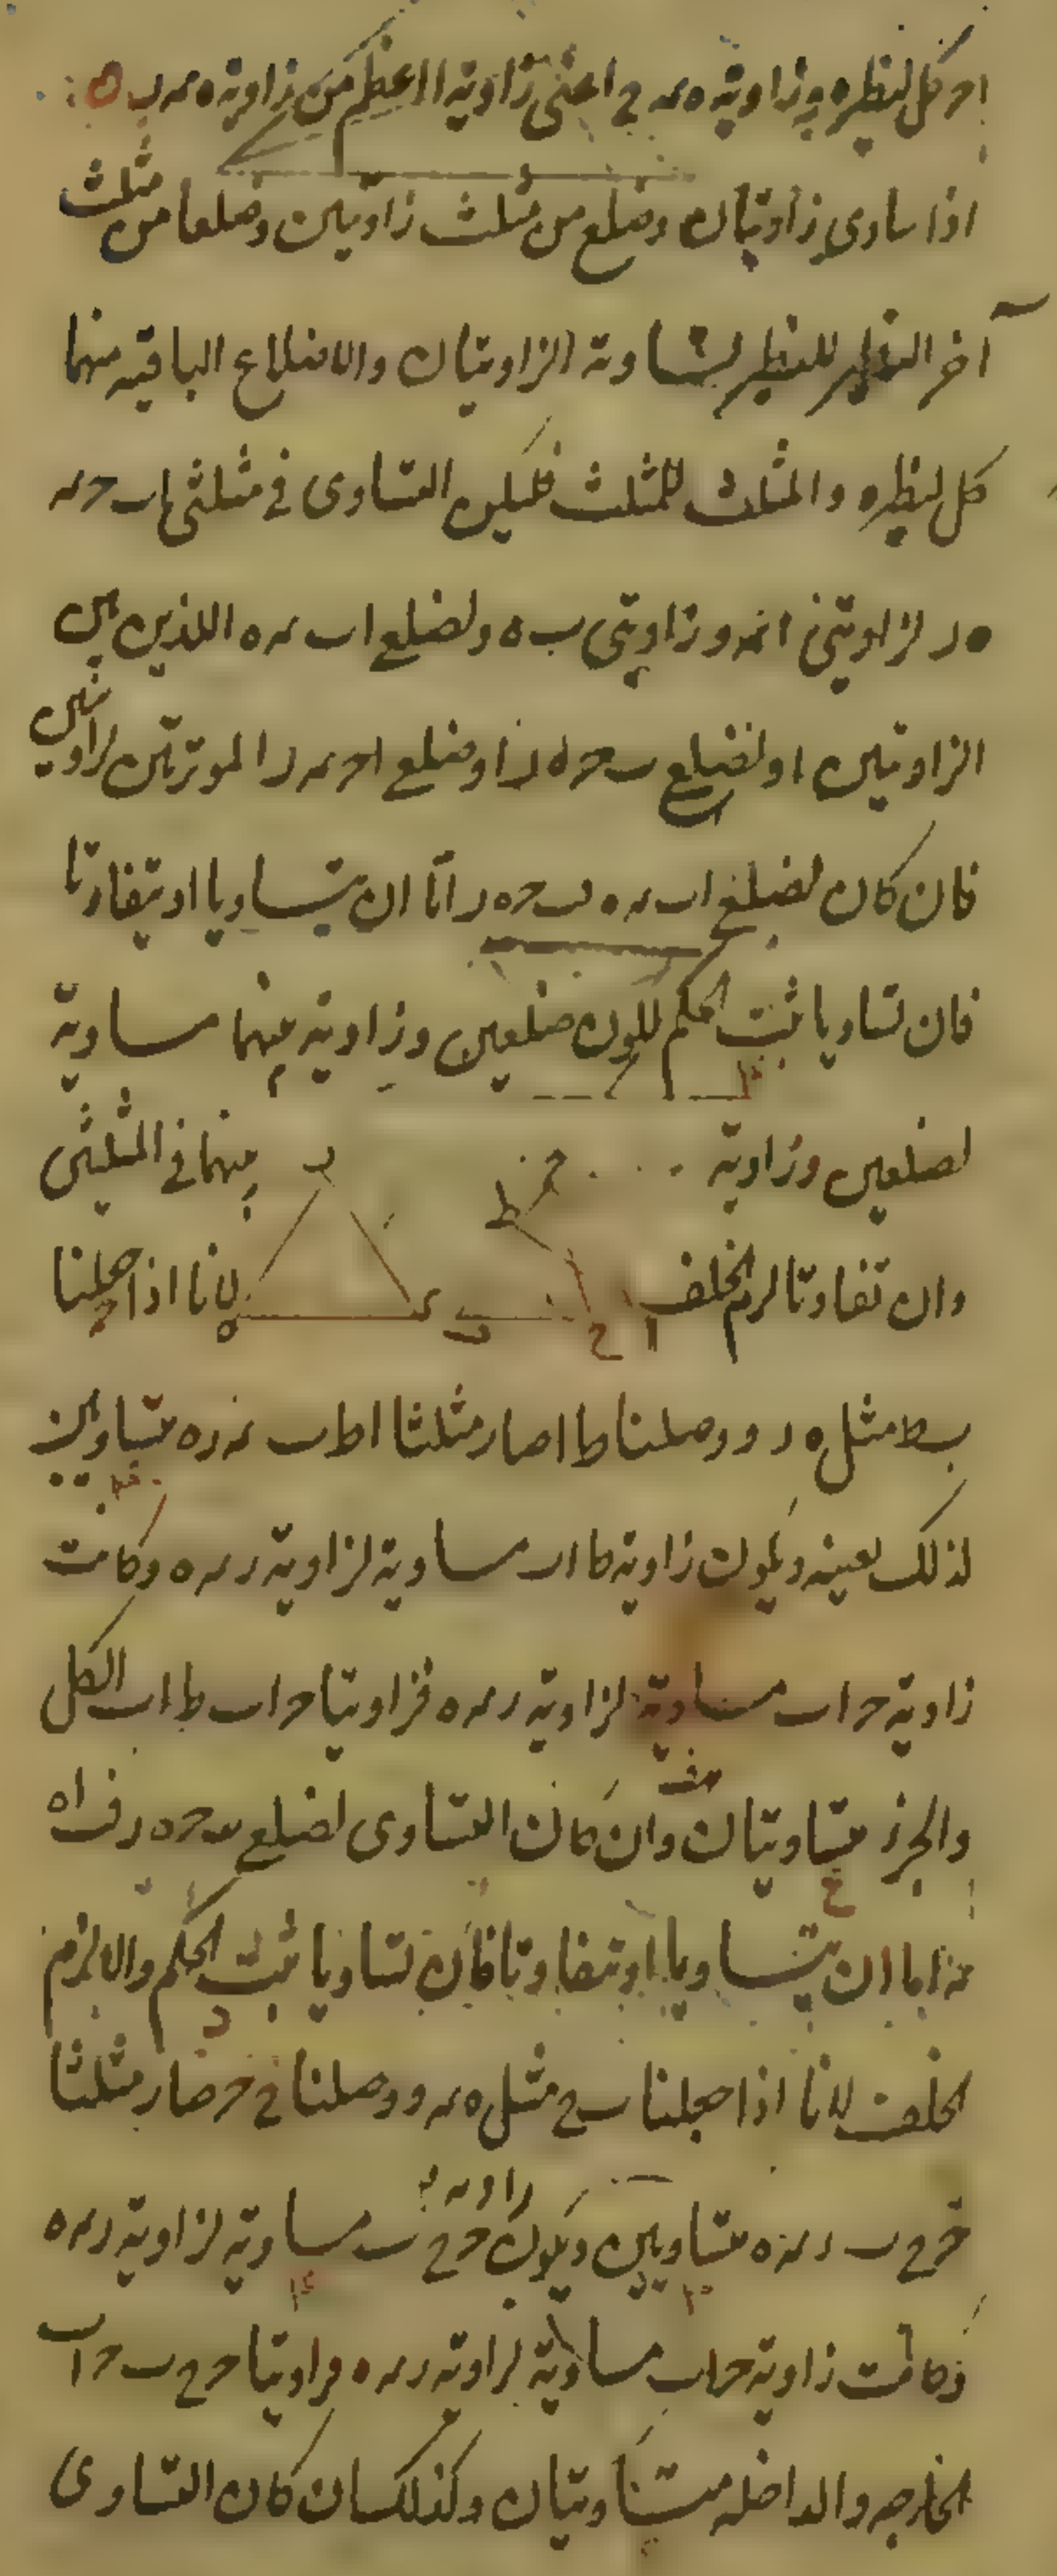 احر كل لنظيره وزاوية ه ر ح اعنى زاوية ا اعظم من زاوية ه ر ب
اذا ساوى زاويتان وضلع من مثلث زاويتين وضلعا من مثلث
آخر النظير للنظير تساوت الزاويتان والاضلاع الباقيه منهما
كل لنظيره والمثلث للمثلث فليكن التساوى فى مثلثى اب حر
ه د لزاويتى ا ر وزاويتى ب ه ولضلع اب ر ه اللذين بين
الزاويتين او لضلع ب ح ه د او ضلع اح ر د الموترتين لزاويتين
فان كان لضلع اب ر ه ف ب ح ه د اما ان يتساويا او يتفاوتا
فان تساويا ثبت الحكم لكون ضلعين وزاويه بينهما مساوية
لضلعين وزاوية بينهما فى المثلثين
وان تفاوتا لزم الخلف لانا اذا جعلنا
ب ط مثل ه د ووصلنا ط ا صار مثلثا اط ب ر د ه متساويين
لذلك بعينه ويكون زاوية ط اب مساوية لزاوية د ر ه وكانت
زاوية ح اب مساوية لزاوية د ر ه فزاويتا ح اب ط اب الكل
والجزء متساويتان وان كان التساوى لضلع ب ح ه د ف اب ه
ر اما ان يتساويا او يتفاوتا فان تساويا ثبت الحكم والا لزم
الخلف لانا اذا جعلنا ب ح مثل ه ر ووصلنا ح ح صار مثلثا
ح ح ب د ر ه متساويين ويكون زاويه ح ح ب مساوية لزاوية د ر ه
وكانت زاوية ح اب مساوية لزاويه د ر ه فزاويتا ح ح ب ح اب
الخارجه والداخله متساويتان وكذلك ان كان التساوى